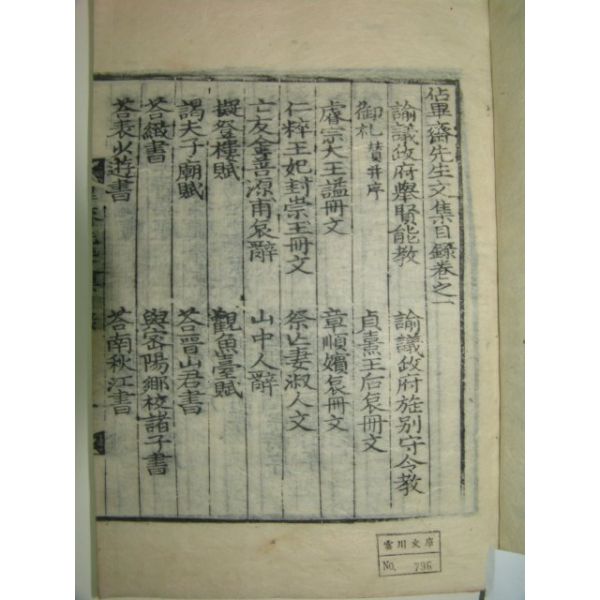 佔畢齋先生文集目錄卷之一
諭議政府舉賢能教 諭議政府旌別守令教
御札贊并序 貞熹王后哀冊文
睿宗大王謚冊文 章順嬪哀冊文
仁粹王妃封崇王冊文 祭亡妻淑人文
亡友金善源甫哀辭 山中人辭
擬登樓賦 觀魚臺賦
謁夫子廟賦 荅晋山君書
荅緻書 與密陽鄉校諸子書
荅表少游書 荅南秋江書
雪川文庫
No. 796